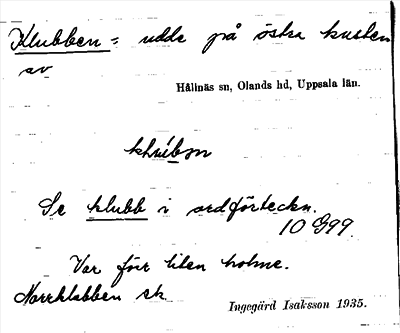 Klubben = udde på östra kusten
av
Hållnäs sn, Olands hd, Uppsala län.
Se klubb i ordförteckn.
10 G99
Var förr liten holme.
Norrklubben ek.
Ingegärd Isaksson 1935.